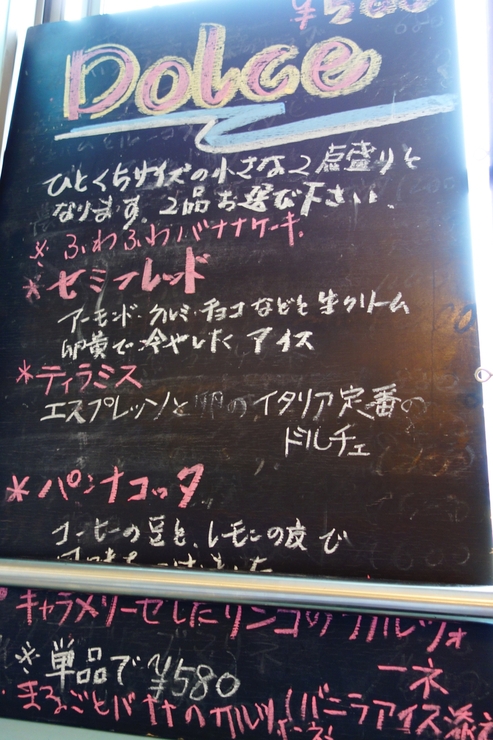 ¥500
Dolce
ひとくちサイズの小さな2点盛りと
なります。2品お選び下さい。
※ふわふわバナナケーキ
*セミフレッド
アーモンド・クルミ・チョコなどと生クリーム
卵黄で冷やしたアイス
*ティラミス
エスプレッソと卵のイタリア定番の
ドルチェ
*パンナコッタ
コーヒーの豆と、レモンの皮で
キャラメリーゼしたリンゴのカルツォ
ーネ
※単品で¥580
まるごとバナナのカルツォーネ(バニラアイス添